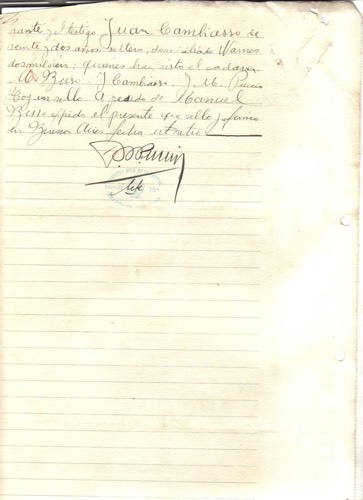 rante y el testigo Juan Cambiasso de
veinte y dos años soltero, domiciliado Warnes
dosmil cien; quienes han visto el cadaver
M. Bisso. J. Cambiasso. J. M.
Hay un sello. A pedido de Manuel
Bisso expido el presente que sello y firmo
en Buenos Aires fecha ut retro